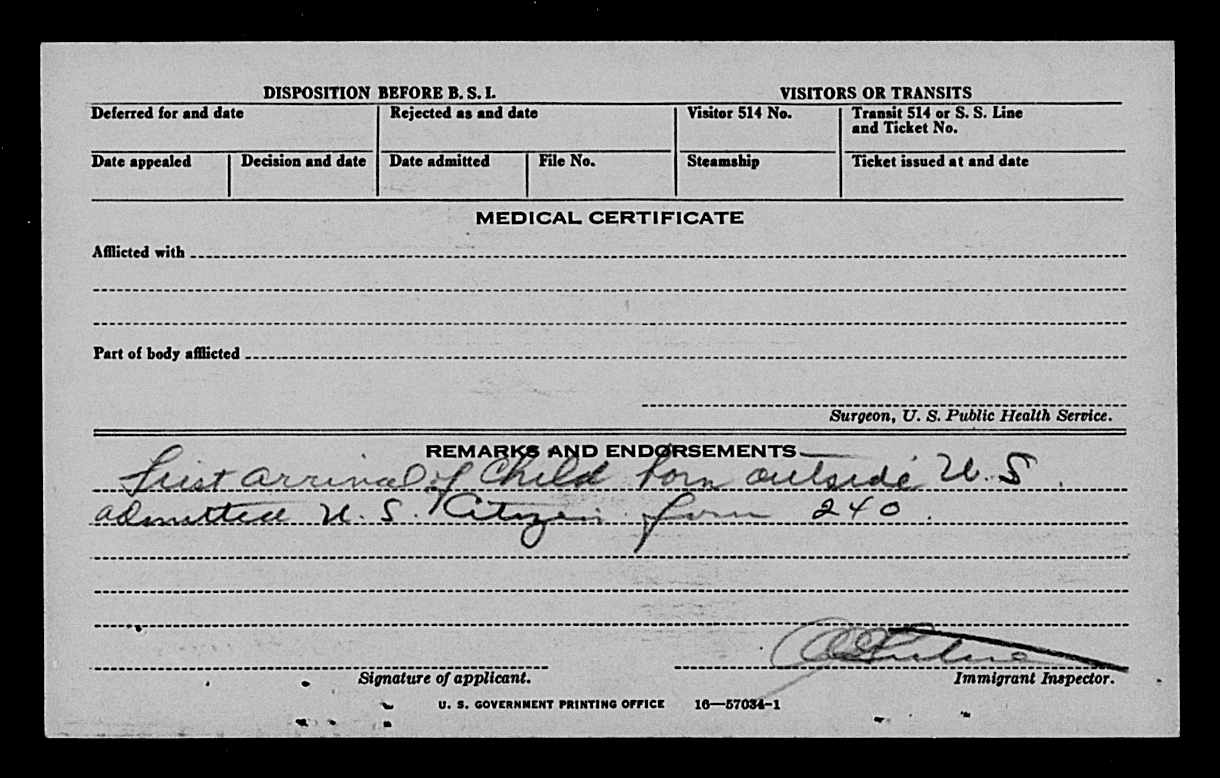 DISPOSITION BEFORE B. S. I.
VISITORS OR TRANSITS
Deferred for and date
Rejected as and date
Visitor 514 No.
Transit 514 or S. S. Line
and Ticket No.
Date appealed
Decision and date
Date admitted
File No.
Steamship
Ticket issued at and date
MEDICAL CERTIFICATE
Afflicted with
Part of body afflicted
Surgeon, U. S. Public Health Service.
REMARKS AND ENDORSEMENTS
First arrival of Child born outside U. S.
admitted U. S. Citizen form 240.
Signature of applicant.
Immigrant Inspector.
U. S. GOVERNMENT PRINTING OFFICE 16—57034-1